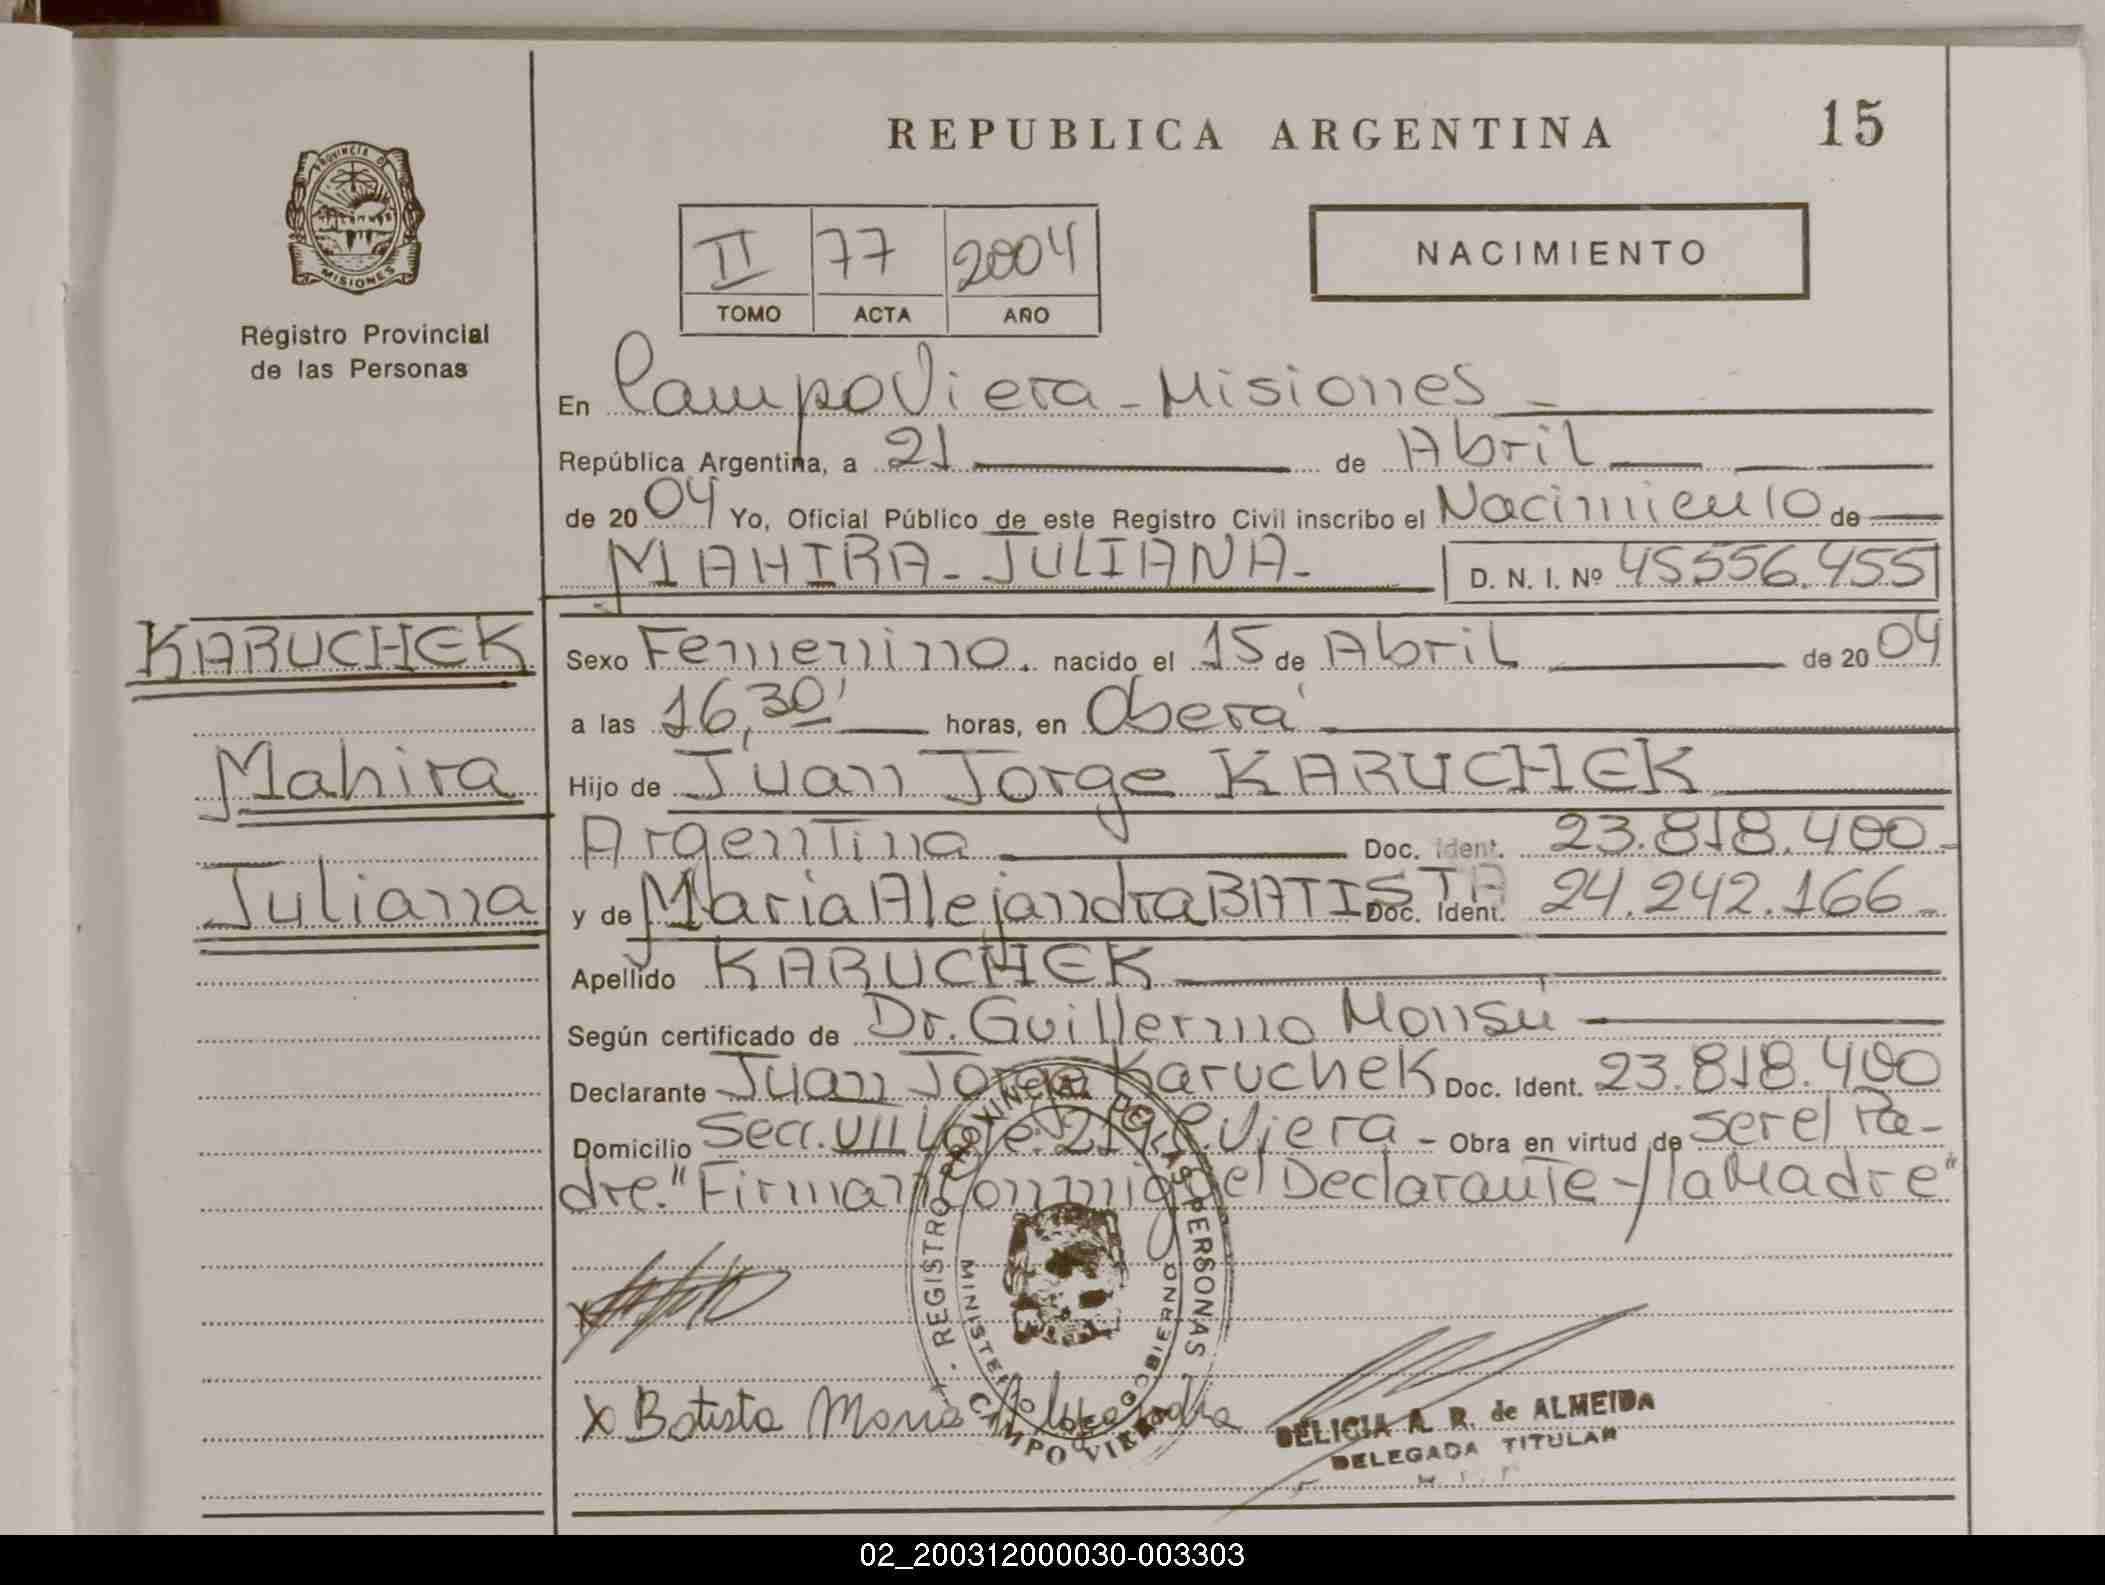 REPUBLICA ARGENTINA 15
PROVINCIA D
MISIONES
Registro Provincial
de las Personas
NACIMIENTO
II 77 2004
TOMO ACTA AÑO
En CampoViera - Misiones -
República Argentina, a 21 de Abril
de 2004 Yo, Oficial Público de este Registro Civil inscribo el Nacimiento de
MAHIRA - JULIANA - D. N. I. Nº 45556.455
KARUCHEK
Mahira
Juliana
Sexo Femenino. nacido el 15 de Abril de 2004
a las 16,30' horas, en Oberá
Hijo de Juan Jorge KARUCHEK
Argentina Doc. Ident. 23.818.400-
y de María Alejandra BATISTA Doc. Ident. 24.242.166-
Apellido KARUCHEK
Según certificado de Dr. Guillermo Monsú
Declarante Juan Jorge Karuchek Doc. Ident. 23.818.400
Domicilio Secc. VII Lote: C. Viera - Obra en virtud de ser el Pa-
dre. "Firman conmigo el Declarante y la Madre"
REGISTRO PROVINCIAL DE LAS PERSONAS
MINISTERIO DE GOBIERNO
CAMPO VIERA
X
X Batista Maria Alejandra
DELICIA A. R. de ALMEIDA
DELEGADA TITULAR
02_200312000030-003303